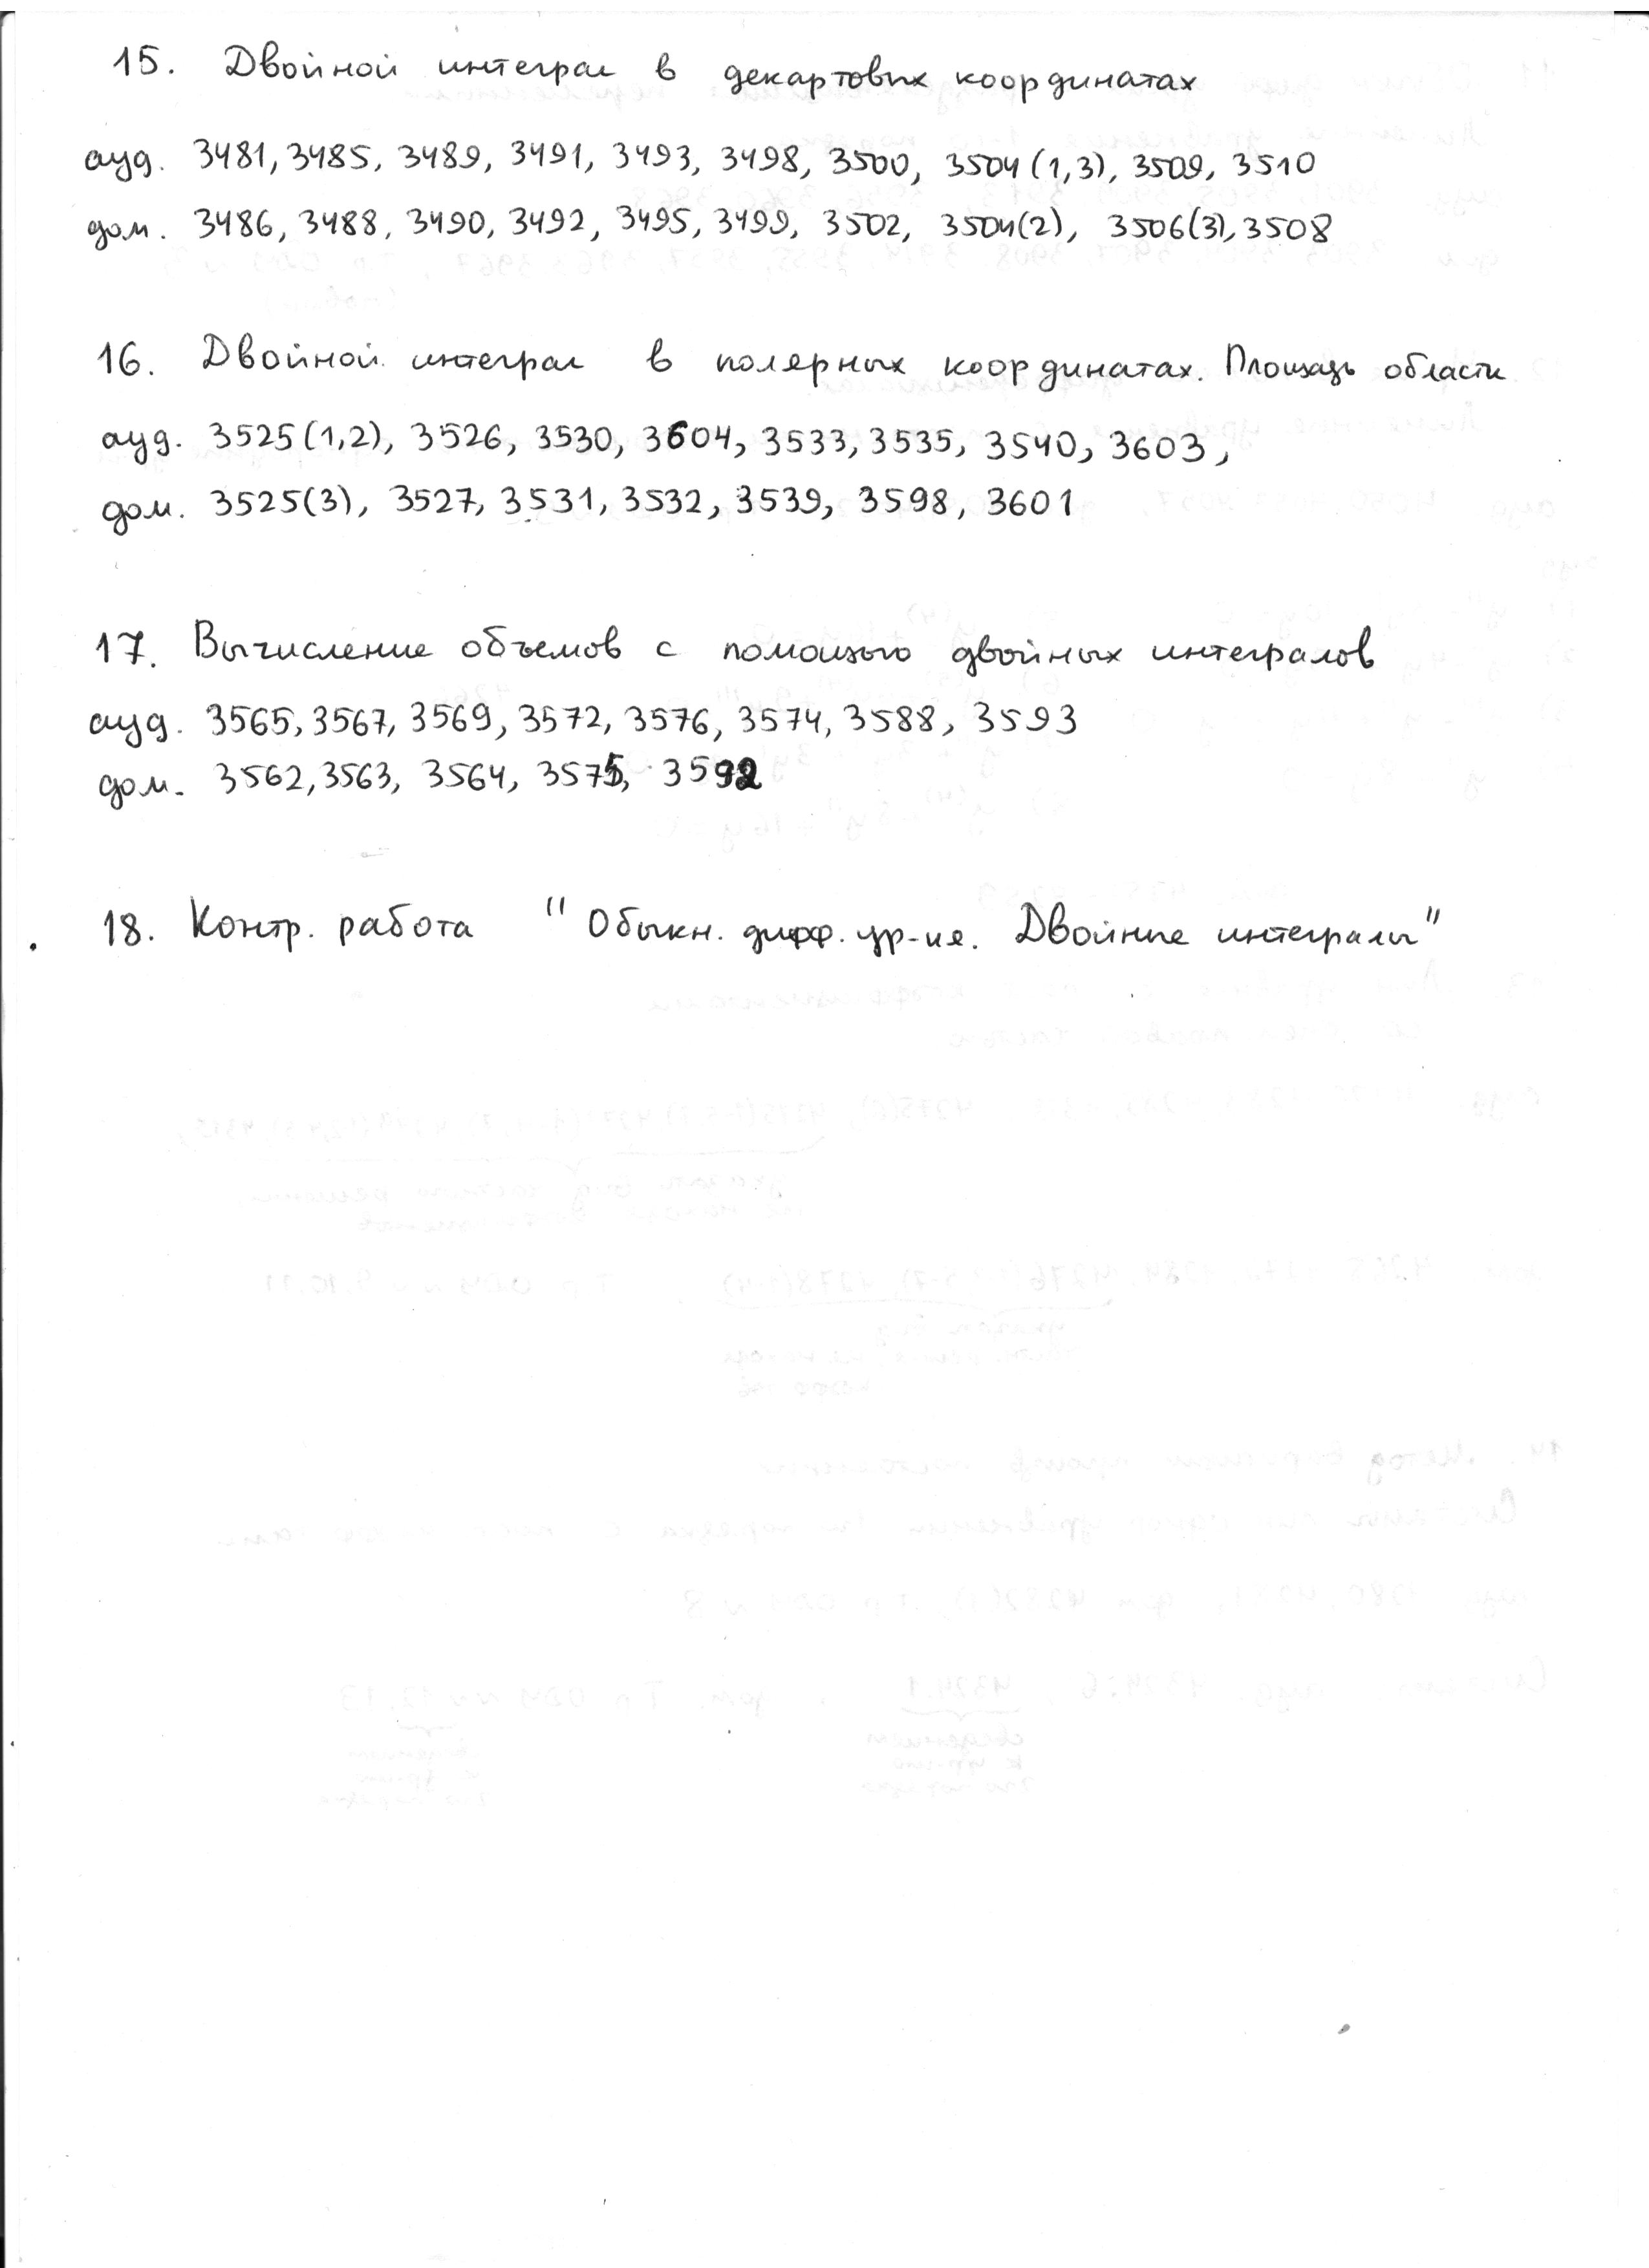 15. Двойной интеграл в декартовых координатах
ауд. 3481, 3485, 3489, 3491, 3493, 3498, 3500, 3504 (1,3), 3509, 3510
дом. 3486, 3488, 3490, 3492, 3495, 3499, 3502, 3504(2), 3506(3), 3508
16. Двойной интеграл в полярных координатах. Площадь области
ауд. 3525(1,2), 3526, 3530, 3604, 3533, 3535, 3540, 3603,
дом. 3525(3), 3527, 3531, 3532, 3539, 3598, 3601
17. Вычисление объемов с помощью двойных интегралов
ауд. 3565, 3567, 3569, 3572, 3576, 3574, 3588, 3593
дом. 3562, 3563, 3564, 3575, 3592
18. Контр. работа "Обыкн. дифф. ур-ия. Двойные интегралы"